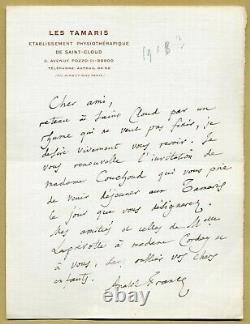 LES TAMARIS
ETABLISSEMENT PHYSIOTHÉRAPIQUE
DE SAINT-CLOUD
3, AVENUE POZZO-DI-BORGO
Cher ami,
retenu à Saint Cloud par un
rhume qui ne veut pas finir, je
désire vivement vous revoir. Je
vous renouvelle l'invitation de
madame Couchoud qui vous prie
de venir déjeuner aux Tamaris
le jour que vous désignerez.
Mes amitiés et celles de Mlle
Laprévotte à madame Corday et
à vous, sans oublier vos chers
enfants.
Anatole France